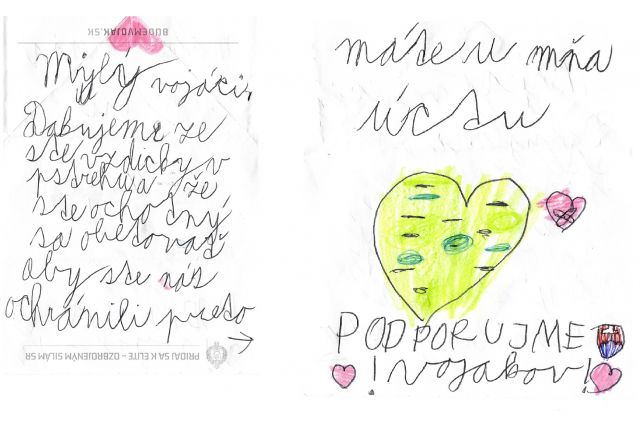 BUDEMVOJAK.SK
Mylý vojáci,
Ďakujeme ze
ste vzdicky v
pstrehu a že
ste ochotný
sa obetovať
aby ste nás
ochránili preto
PRIDAJ SA K ELITE – OZBROJENÝM SILÁM SR
máte u mňa
úctu
PODPORUJME
! vojakov !